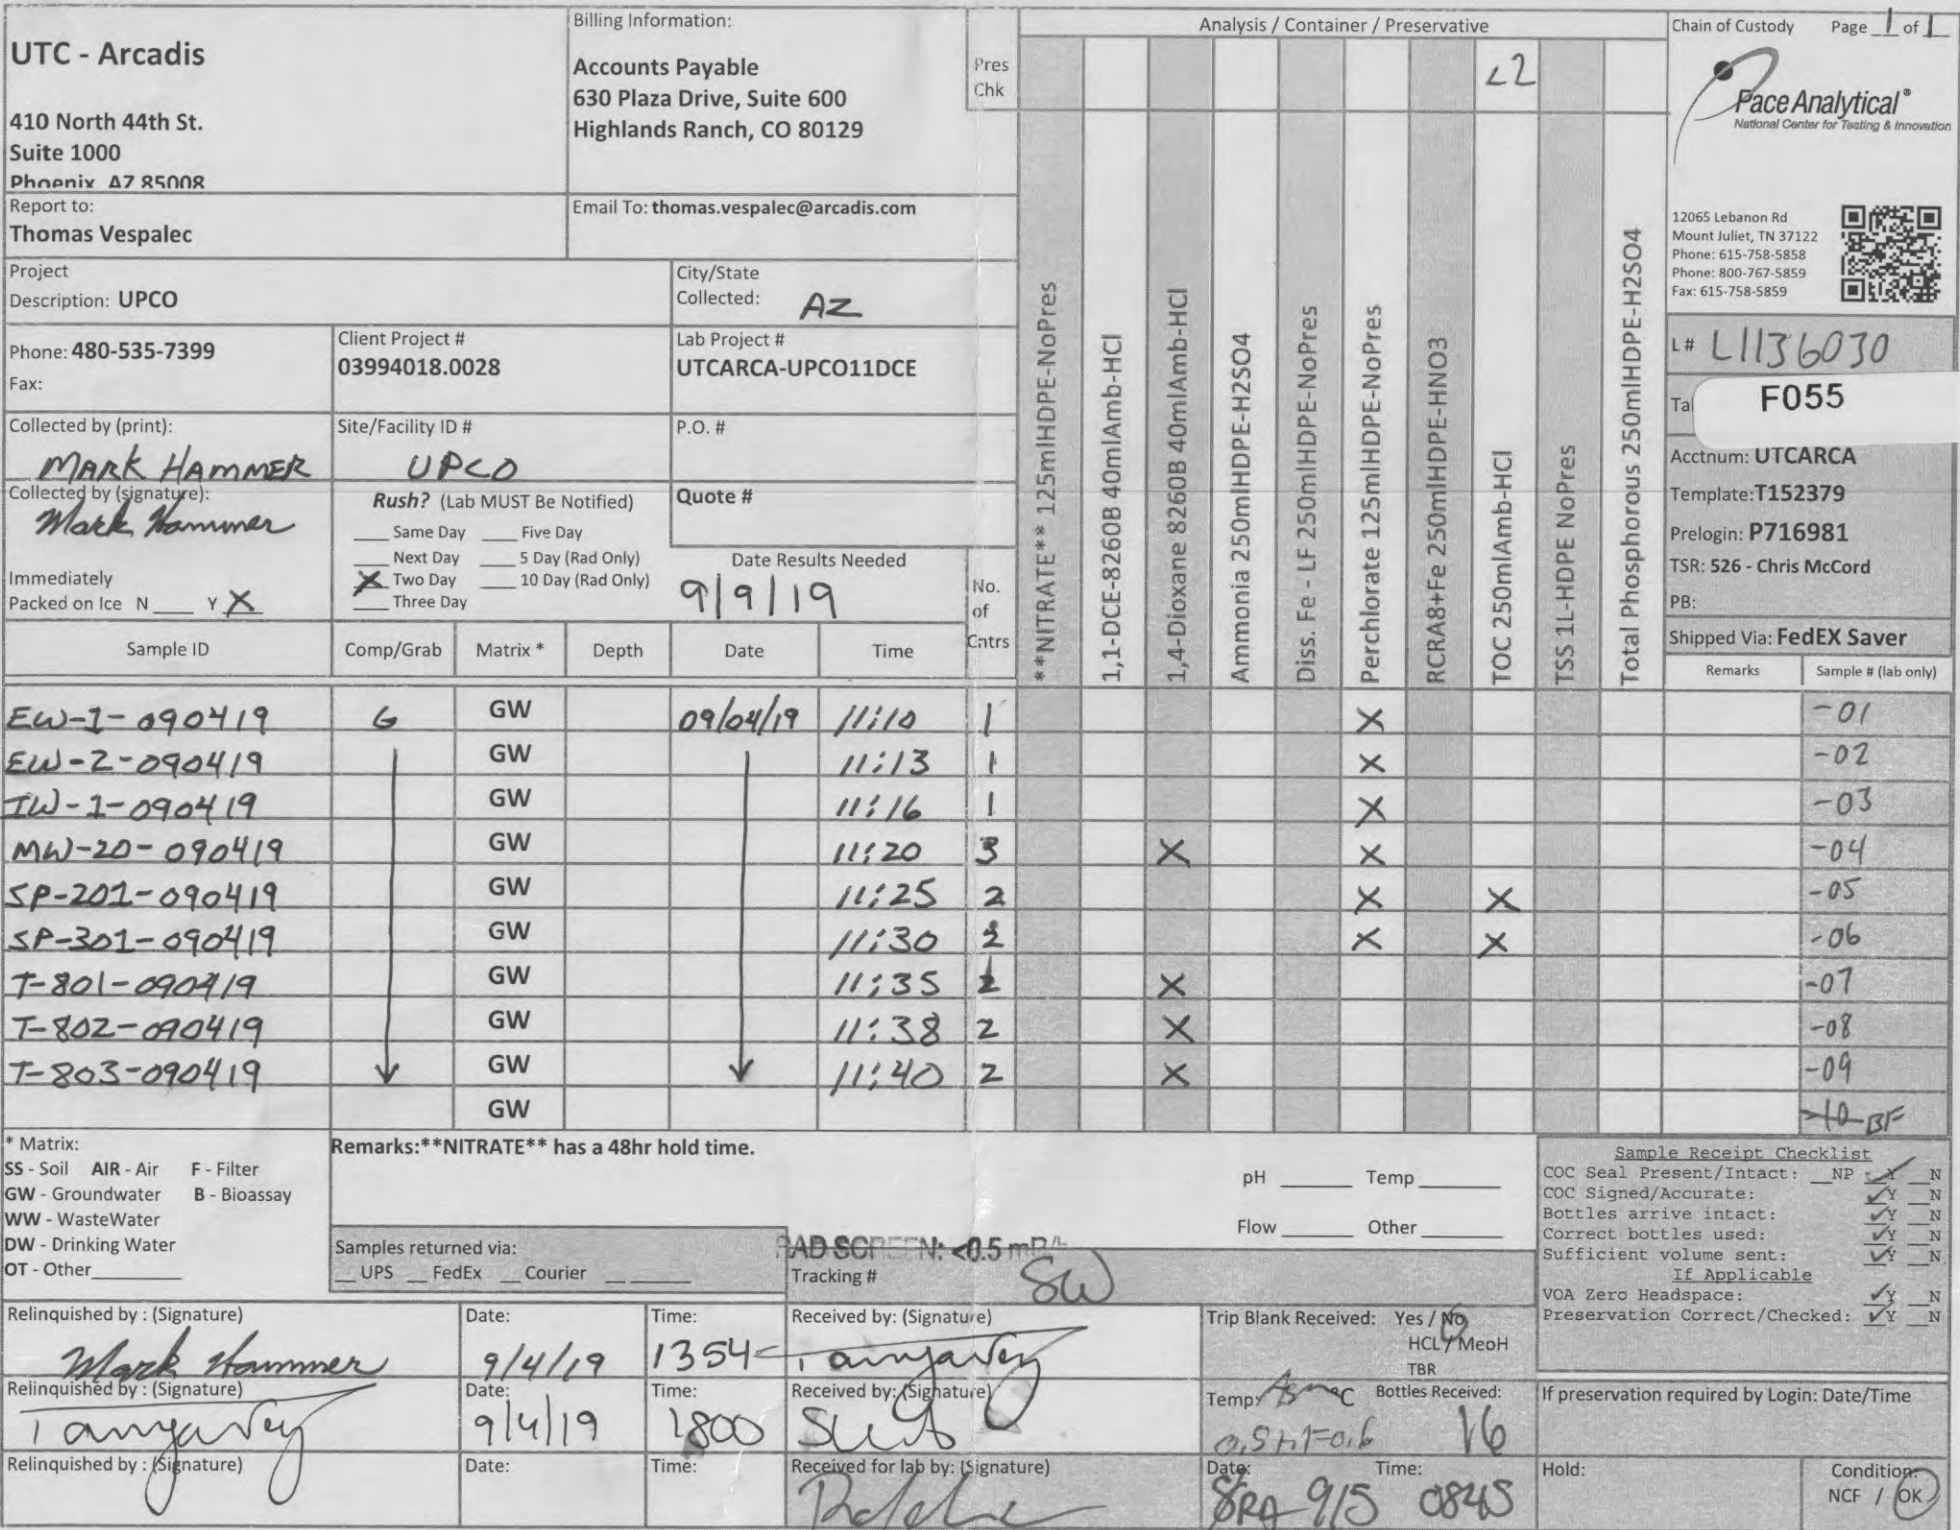 UTC - Arcadis
410 North 44th St.
Suite 1000
Phoenix, AZ 85008
Billing Information:
Accounts Payable
630 Plaza Drive, Suite 600
Highlands Ranch, CO 80129
Pres
Chk
Analysis / Container / Preservative
<2
Chain of Custody Page 1 of 1
Pace Analytical®
National Center for Testing & Innovation
12065 Lebanon Rd
Mount Juliet, TN 37122
Phone: 615-758-5858
Phone: 800-767-5859
Fax: 615-758-5859
Report to:
Thomas Vespalec
Email To: thomas.vespalec@arcadis.com
Project
Description: UPCO
City/State
Collected: AZ
Phone: 480-535-7399
Fax:
Client Project #
03994018.0028
Lab Project #
UTCARCA-UPCO11DCE
Collected by (print):
MARK HAMMER
Site/Facility ID #
UPCO
P.O. #
Collected by (signature):
Mark Hammer
Rush? (Lab MUST Be Notified)
___ Same Day ___ Five Day
___ Next Day ___ 5 Day (Rad Only)
X Two Day ___ 10 Day (Rad Only)
___ Three Day
Quote #
Date Results Needed
9/9/19
Immediately
Packed on Ice N ___ Y X
No.
of
Cntrs
**NITRATE** 125mlHDPE-NoPres
1,1-DCE-8260B 40mlAmb-HCl
1,4-Dioxane 8260B 40mlAmb-HCl
Ammonia 250mlHDPE-H2SO4
Diss. Fe - LF 250mlHDPE-NoPres
Perchlorate 125mlHDPE-NoPres
RCRA8+Fe 250mlHDPE-HNO3
TOC 250mlAmb-HCl
TSS 1L-HDPE NoPres
Total Phosphorous 250mlHDPE-H2SO4
L# L1136030
Ta
F055
Acctnum: UTCARCA
Template:T152379
Prelogin: P716981
TSR: 526 - Chris McCord
PB:
Shipped Via: FedEX Saver
Sample ID Comp/Grab Matrix * Depth Date Time Remarks Sample # (lab only)
EW-1-090419 G GW 09/04/19 11:10 1 X -01
EW-2-090419 GW 11:13 1 X -02
IW-1-090419 GW 11:16 1 X -03
MW-20-090419 GW 11:20 3 X X -04
SP-201-090419 GW 11:25 2 X X -05
SP-301-090419 GW 11:30 2 X X -06
T-801-090419 GW 11:35 2 X -07
T-802-090419 GW 11:38 2 X -08
T-803-090419 GW 11:40 2 X -09
GW -10 BF
* Matrix:
SS - Soil AIR - Air F - Filter
GW - Groundwater B - Bioassay
WW - WasteWater
DW - Drinking Water
OT - Other
Remarks:**NITRATE** has a 48hr hold time.
pH ___ Temp ___
Flow ___ Other ___
Samples returned via:
__ UPS __ FedEx __ Courier __
RAD SCREEN: <0.5 mR/h
Tracking #
SW
Sample Receipt Checklist
COC Seal Present/Intact: __NP ✓Y __N
COC Signed/Accurate: ✓Y __N
Bottles arrive intact: ✓Y __N
Correct bottles used: ✓Y __N
Sufficient volume sent: ✓Y __N
If Applicable
VOA Zero Headspace: ✓Y __N
Preservation Correct/Checked: ✓Y __N
Relinquished by : (Signature)
Mark Hammer
Date:
9/4/19
Time:
1354
Received by: (Signature)
Trip Blank Received: Yes / No
HCL / MeoH
TBR
Relinquished by : (Signature)
Date:
9/4/19
Time:
1800
Received by: (Signature)
Temp: °C
Bottles Received:
16
If preservation required by Login: Date/Time
Relinquished by : (Signature)
Date:
Time:
Received for lab by: (Signature)
Date:
9/5
Time:
0845
Hold:
Condition:
NCF / OK